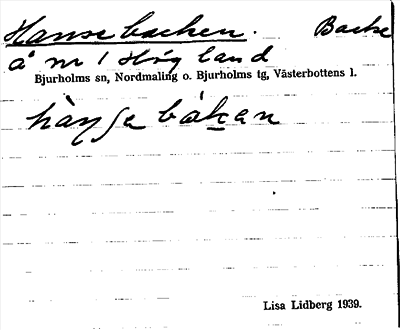 Hansebacken. Backe
å nr 1 Högland
Bjurholms sn, Nordmaling o. Bjurholms tg, Västerbottens l.
bákan
Lisa Lidberg 1939.